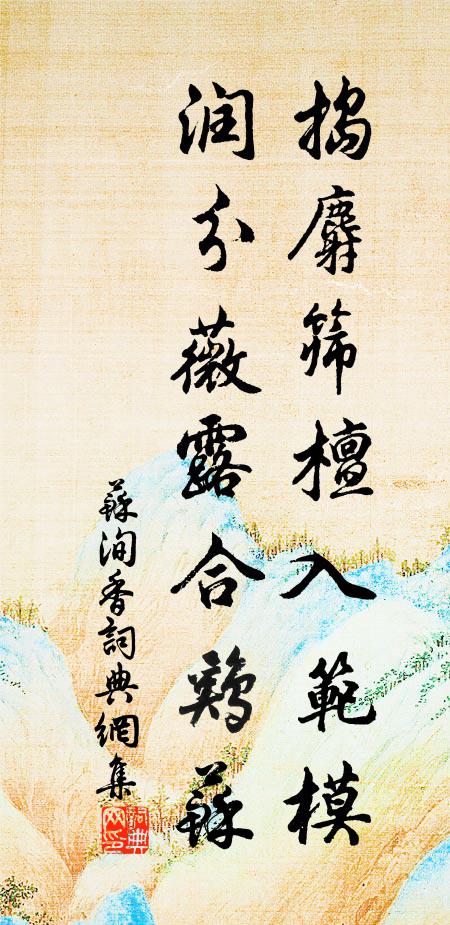 搗麝篩檀入範模
潤分薇露合鷄蘇
蘇洵香詞典網集